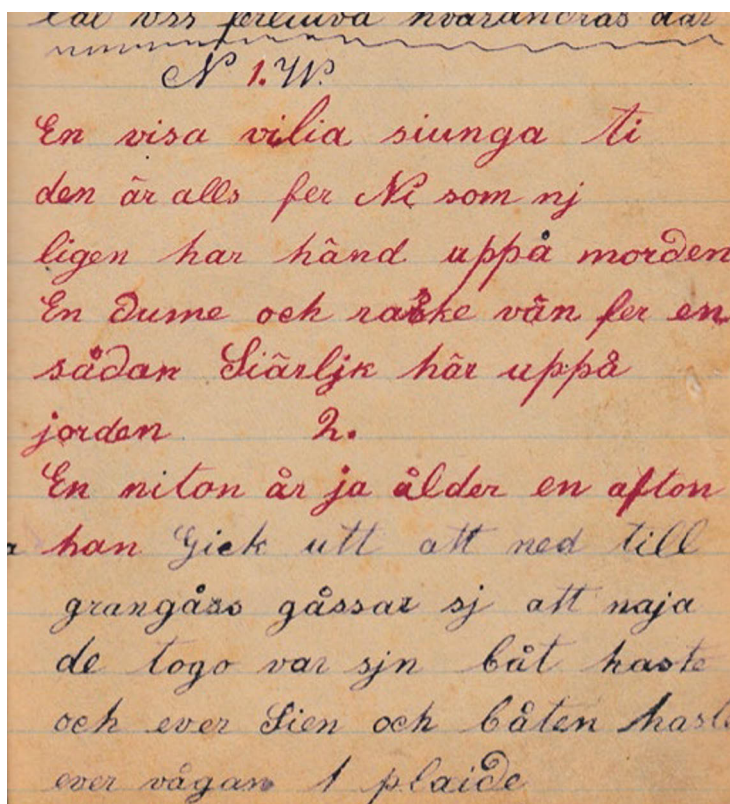 låt oss ferliuva hvarandras där
N 1. W.
En visa vilia siunga ti
den är alls fer Ni som nj
ligen har händ uppå morden
En dume och raske vän fer en
sådan Siärljk här uppå
jorden 2.
En niton år ja ålder en afton
han Gick utt att ned till
grangåss gåssar sj att naja
de togo var sjn båt haste
och ever Sien och båten hast
ever vågan 1 plaide